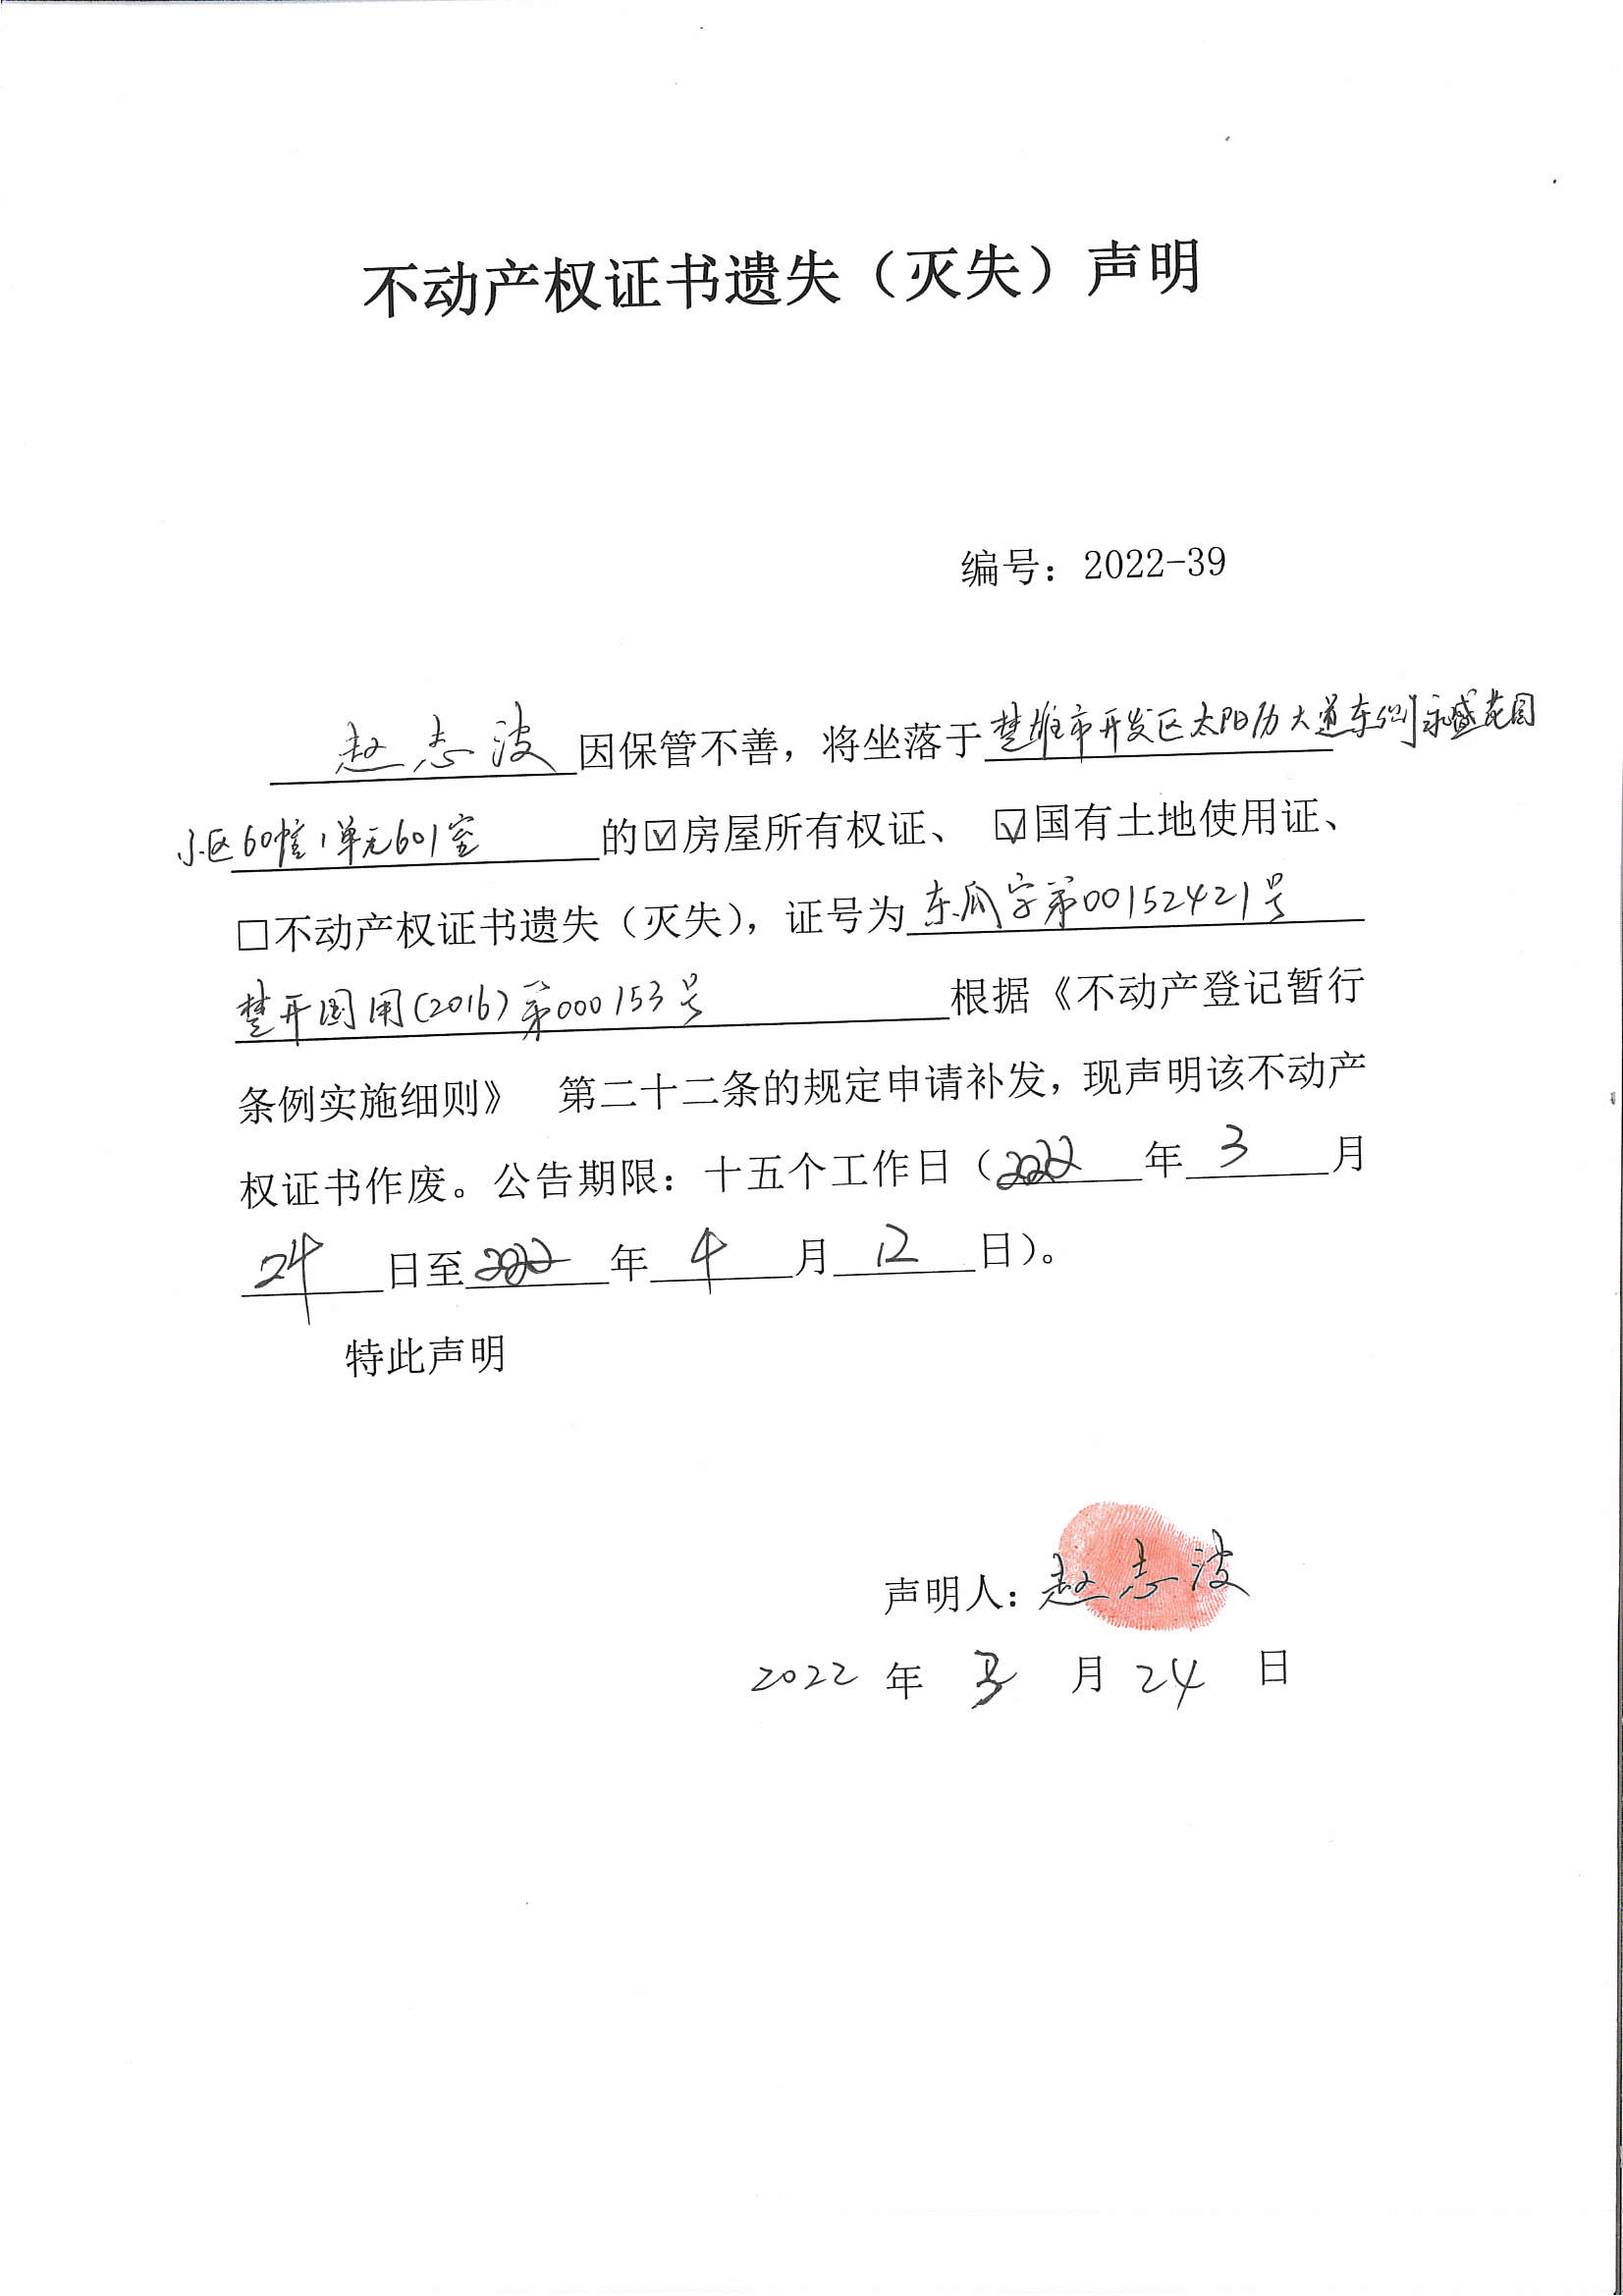 不动产权证书遗失（灭失）声明
编号：2022-39
赵志波因保管不善，将坐落于楚雄市开发区太阳历大道东侧永盛花园
小区60幢1单元601室的☑房屋所有权证、☑国有土地使用证、
□不动产权证书遗失（灭失），证号为东瓜字第00152421号
楚开国用(2016)第000153号根据《不动产登记暂行
条例实施细则》 第二十二条的规定申请补发，现声明该不动产
权证书作废。公告期限：十五个工作日（2022年3月
24日至2022年4月12日）。
特此声明
声明人：赵志波
2022年3月24日